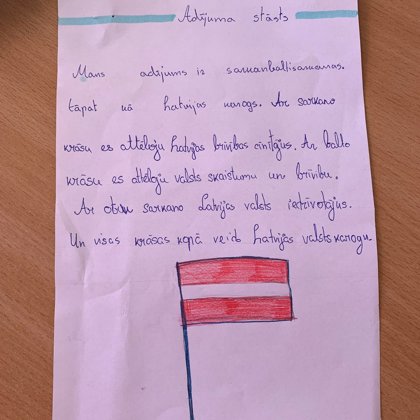 Adījuma stāsts
Mans adījums ir sarkanbaltsarkanas.
tāpat kā Latvijas karogs. Ar sarkano
krāsu es attēloju Latvijas brīvības cīnītājus. Ar balto
krāsu es attēloju valsts skaistumu un brīvību.
Ar otru sarkano Latvijas valsts iedzīvotājus.
Un visas krāsas kopā veido Latvijas valsts karogu.